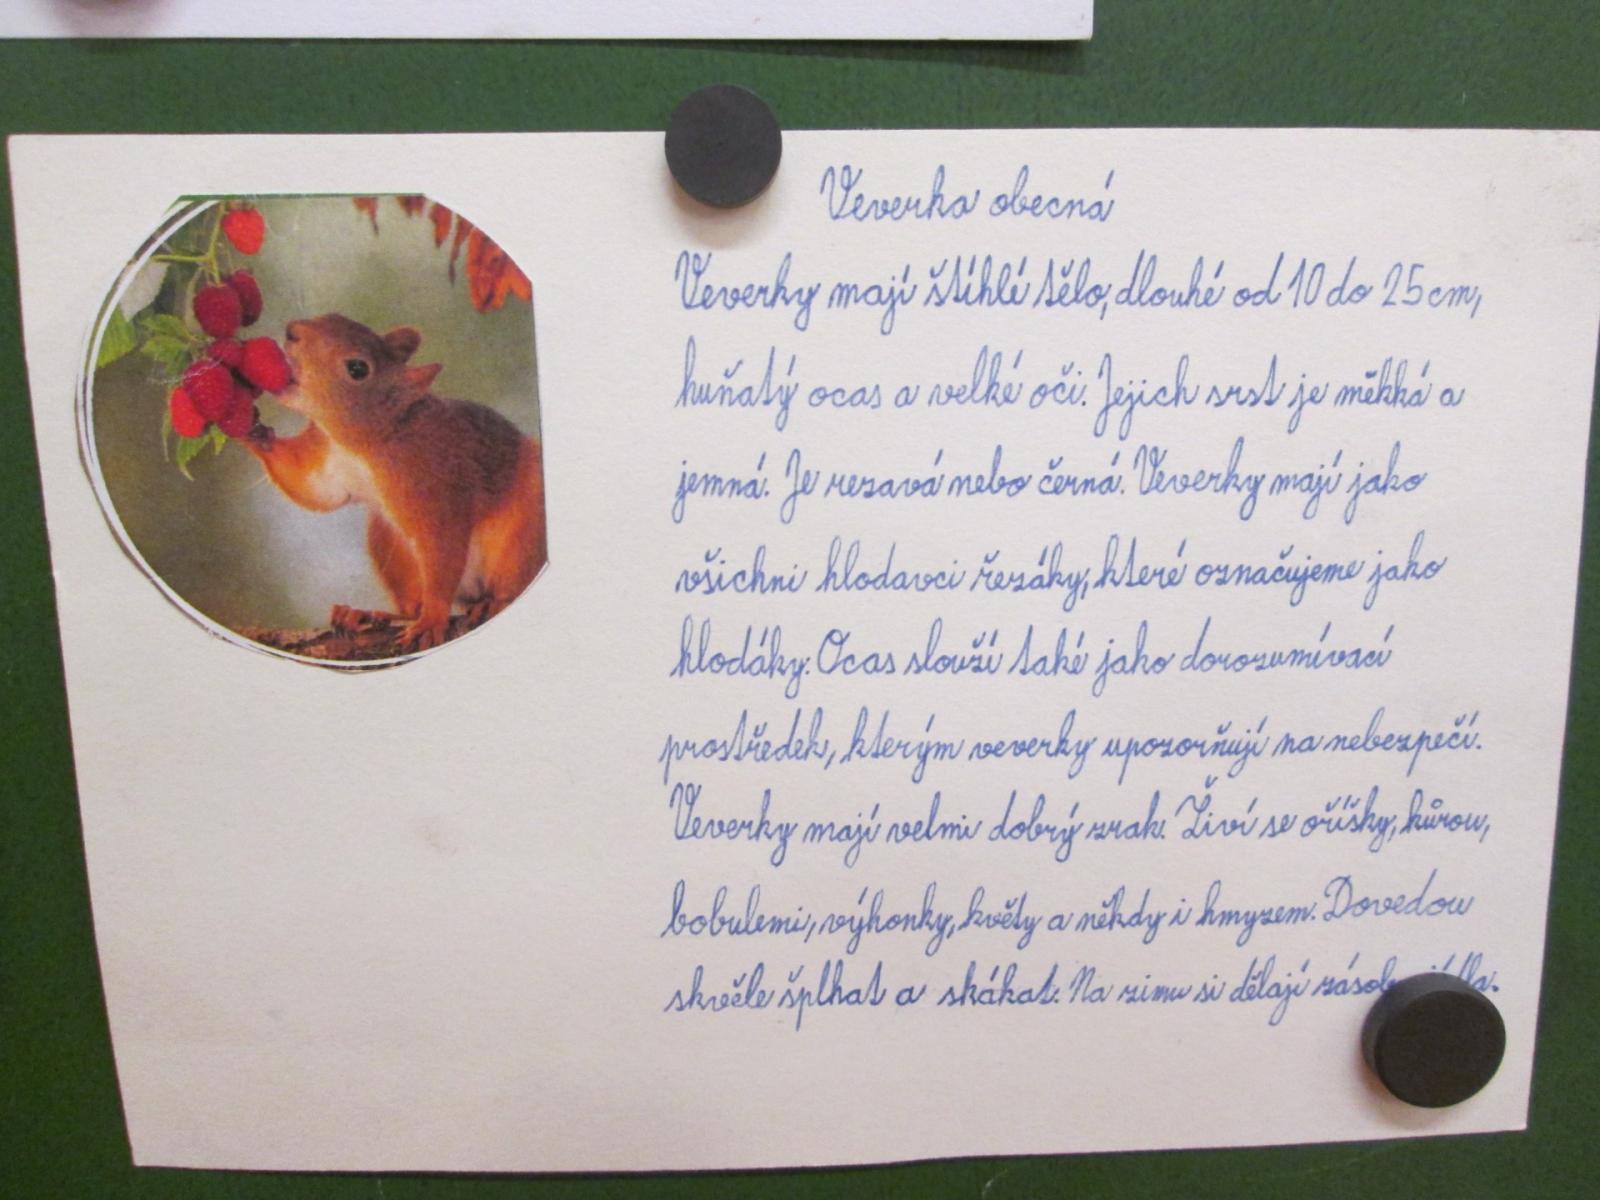 Veverka obecná
Veverky mají štíhlé tělo, dlouhé od 10 do 25 cm,
huňatý ocas a velké oči. Jejich srst je měkká a
jemná. Je rezavá nebo černá. Veverky mají jako
všichni hlodavci řezáky, které označujeme jako
hlodáky. Ocas slouží také jako dorozumívací
prostředek, kterým veverky upozorňují na nebezpečí.
Veverky mají velmi dobrý zrak. Živí se oříšky, kůrou,
bobulemi, výhonky, květy a někdy i hmyzem. Dovedou
skvěle šplhat a skákat. Na zimu si dělají